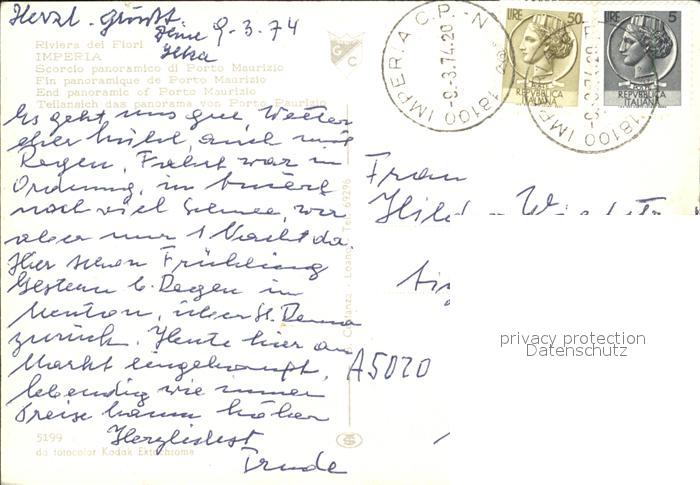 Herzl. Grüße
Deine
Ilka
9-3.74
Riviera dei Fiori
IMPERIA
Scorcio panoramico di Porto Maurizio
Fin panoramique de Porto Maurizio
End panoramic of Porto Maurizio
Teilansich das panorama von Porto Maurizio
G C
Es geht uns gut Wetter
eher kühl, auch mit
Regen, Fahrt war in
Ordnung, in
noch viel Schnee, wir
aber nur 1 Nacht da.
Hier schon Frühling
Gestern b. Regen in
Menton, über St. Remo
zurück. Heute hier am
Markt eingekauft,
lebendig wie immer
Preise kaum höher
Herzlichst
Trude
5199
da fotocolor Kodak Ektachrome
Loano Tel. 69296
IMPERIA C.P.-N
-9-3.74.20
18100
LIRE 50
REPVBBLICA
ITALIANA
LIRE 5
REPVBBLICA
ITALIANA
-9-3.74.20
18100 IMPERIA
Frau
A5020
privacy protection
Datenschutz